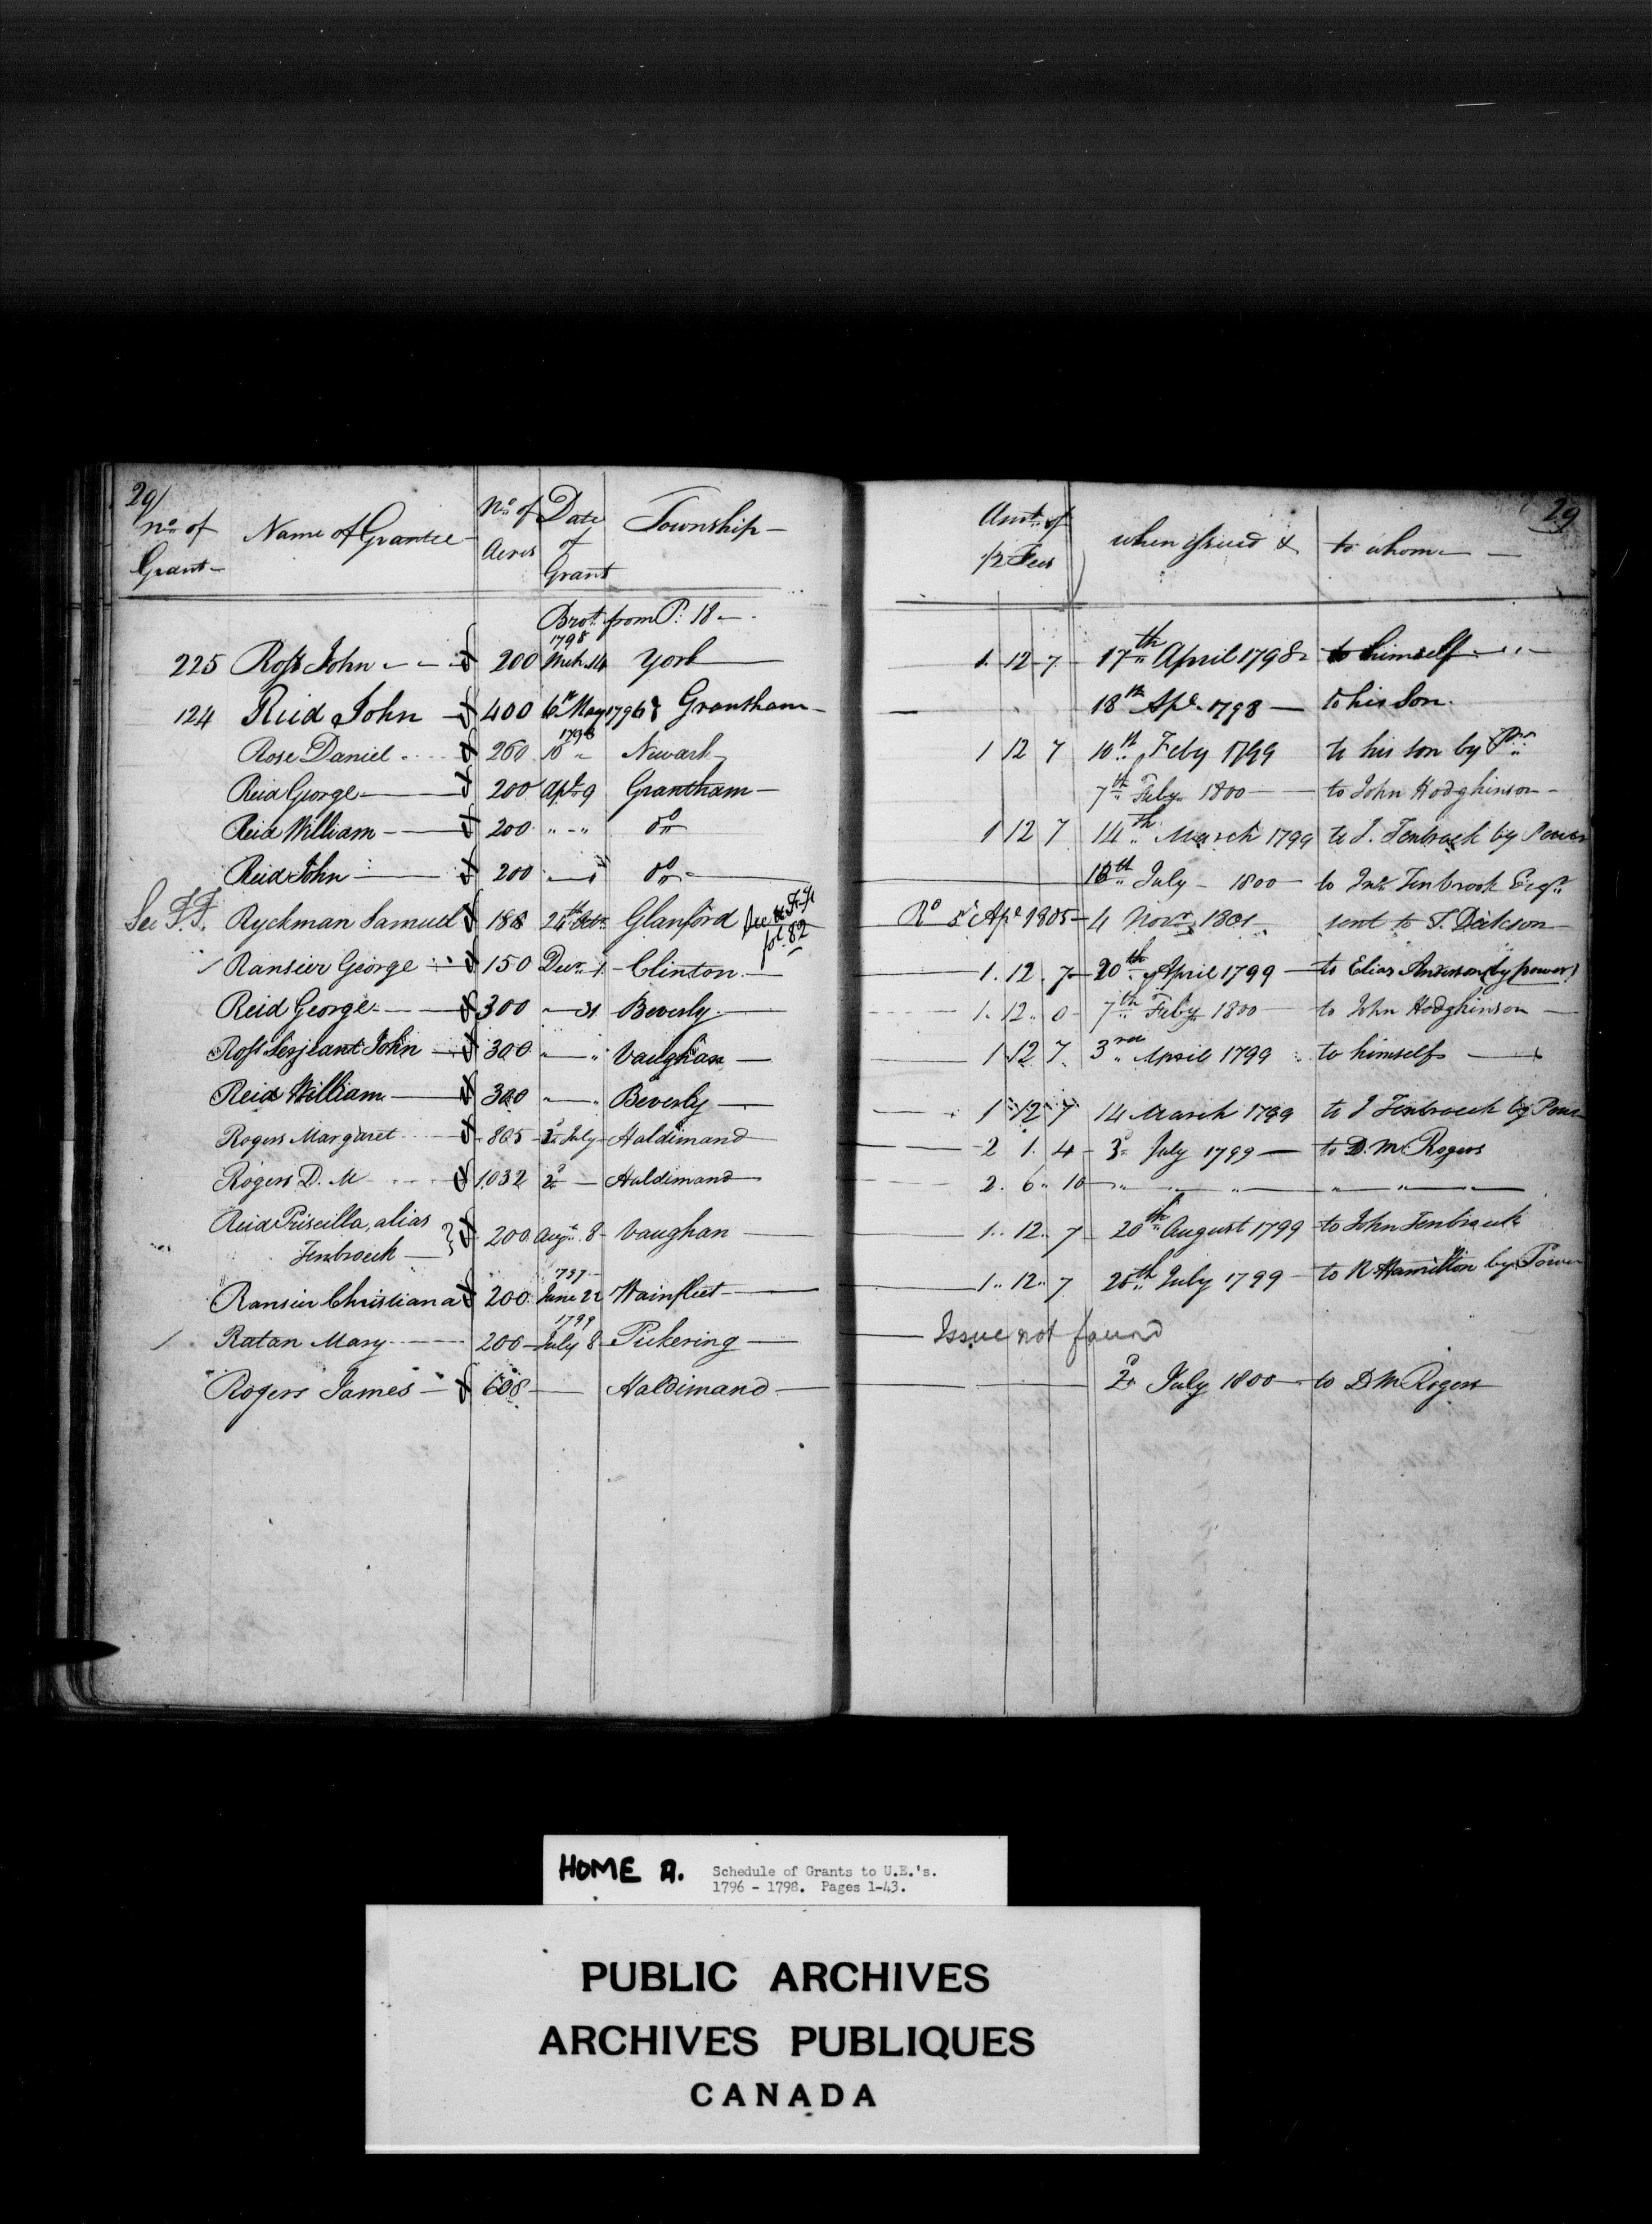 29/ 29
No. of Grant Name of Grantee No. of Acres Date of Grant Township Amt. of 1/2 Fees when issued & to whom
Brot. from P. 18
1798
225 Ross John 200 Mch. 14 York 1 12 7 17th April 1798 to himself
124 Reid John 400 6th May 1796 Grantham 18th Apl. 1798 to his Son
1796
Rose Daniel 260 10 " Newark 1 12 7 10th Feby 1799 to his son by Pr.
Reid George 200 Apl. 9 Grantham 7th Feby. 1800 to John Hodgkinson
Reid William 200 " " Do 1 12 7 14th March 1799 to J. Tenbroeck by Power
Reid John 200 " Do 18th July 1800 to Jno. Tenbrook Esqr.
See F.F. Ryckman Samuel 188 24th Octr. Glanford See F.F. fol. 82 Ro 5 Apl. 1805 4 Novr. 1801 sent to T. Dickson
Ransier George 150 Decr. 1 Clinton 1 12 7 20th April 1799 to Elias Anderson (by power)
Reid George 300 " 31 Beverly 1 12 0 7th Feby 1800 to John Hodgkinson
Ross Serjeant John 300 " " Vaughan 1 12 7 3rd April 1799 to himself
Reid William 300 " " Beverly 1 12 7 14 March 1799 to J Tenbroeck by Power
Rogers Margaret 805 3d July Haldimand 2 1 4 3d July 1799 to D. M. Rogers
Rogers D. M 1032 2d Haldimand 2 6 10 " " " " " "
Reid Priscilla, alias
Tenbroeck 200 Augt. 8 Vaughan 1 12 7 20th August 1799 to John Tenbroeck
1797
Ransier Christiana 200 June 22 Wainfleet 1 12 7 25th July 1799 to R Hamilton by Power
1799
Ratan Mary 200 July 8 Pickering Issue not found
Rogers James 608 Haldimand 2d July 1800 to D M Rogers
HOME A. Schedule of Grants to U.E.'s.
1796 - 1798. Pages 1-43.
PUBLIC ARCHIVES
ARCHIVES PUBLIQUES
CANADA